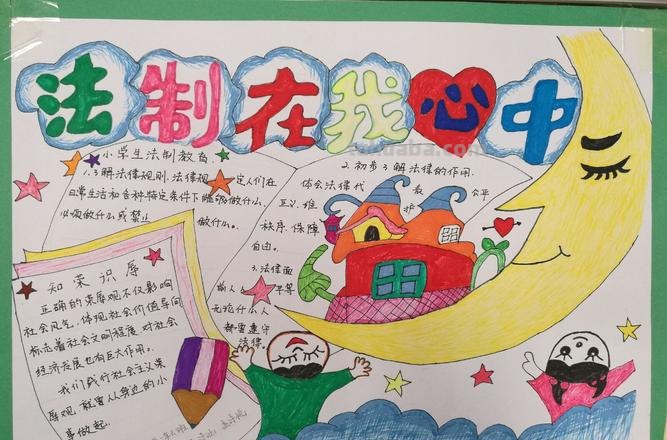 法制在我心中
小学生法制教育
1.了解法律规则,法律规定人们在
日常生活和各种特定条件下能够做什么,
必须做什么或禁止做什么。
2.初步了解法律的作用.
体会法律代表公平
正义、维护
秩序、保障
自由。
3.法律面
前人人平等
无论什么人
都要遵守
法律。
知荣识辱
正确的荣辱观不仅影响
社会风气,体现社会价值导向
标志着社会文明程度,对社会
经济发展也有巨大作用。
我们践行社会主义荣
辱观,就要从身边的小
事做起.